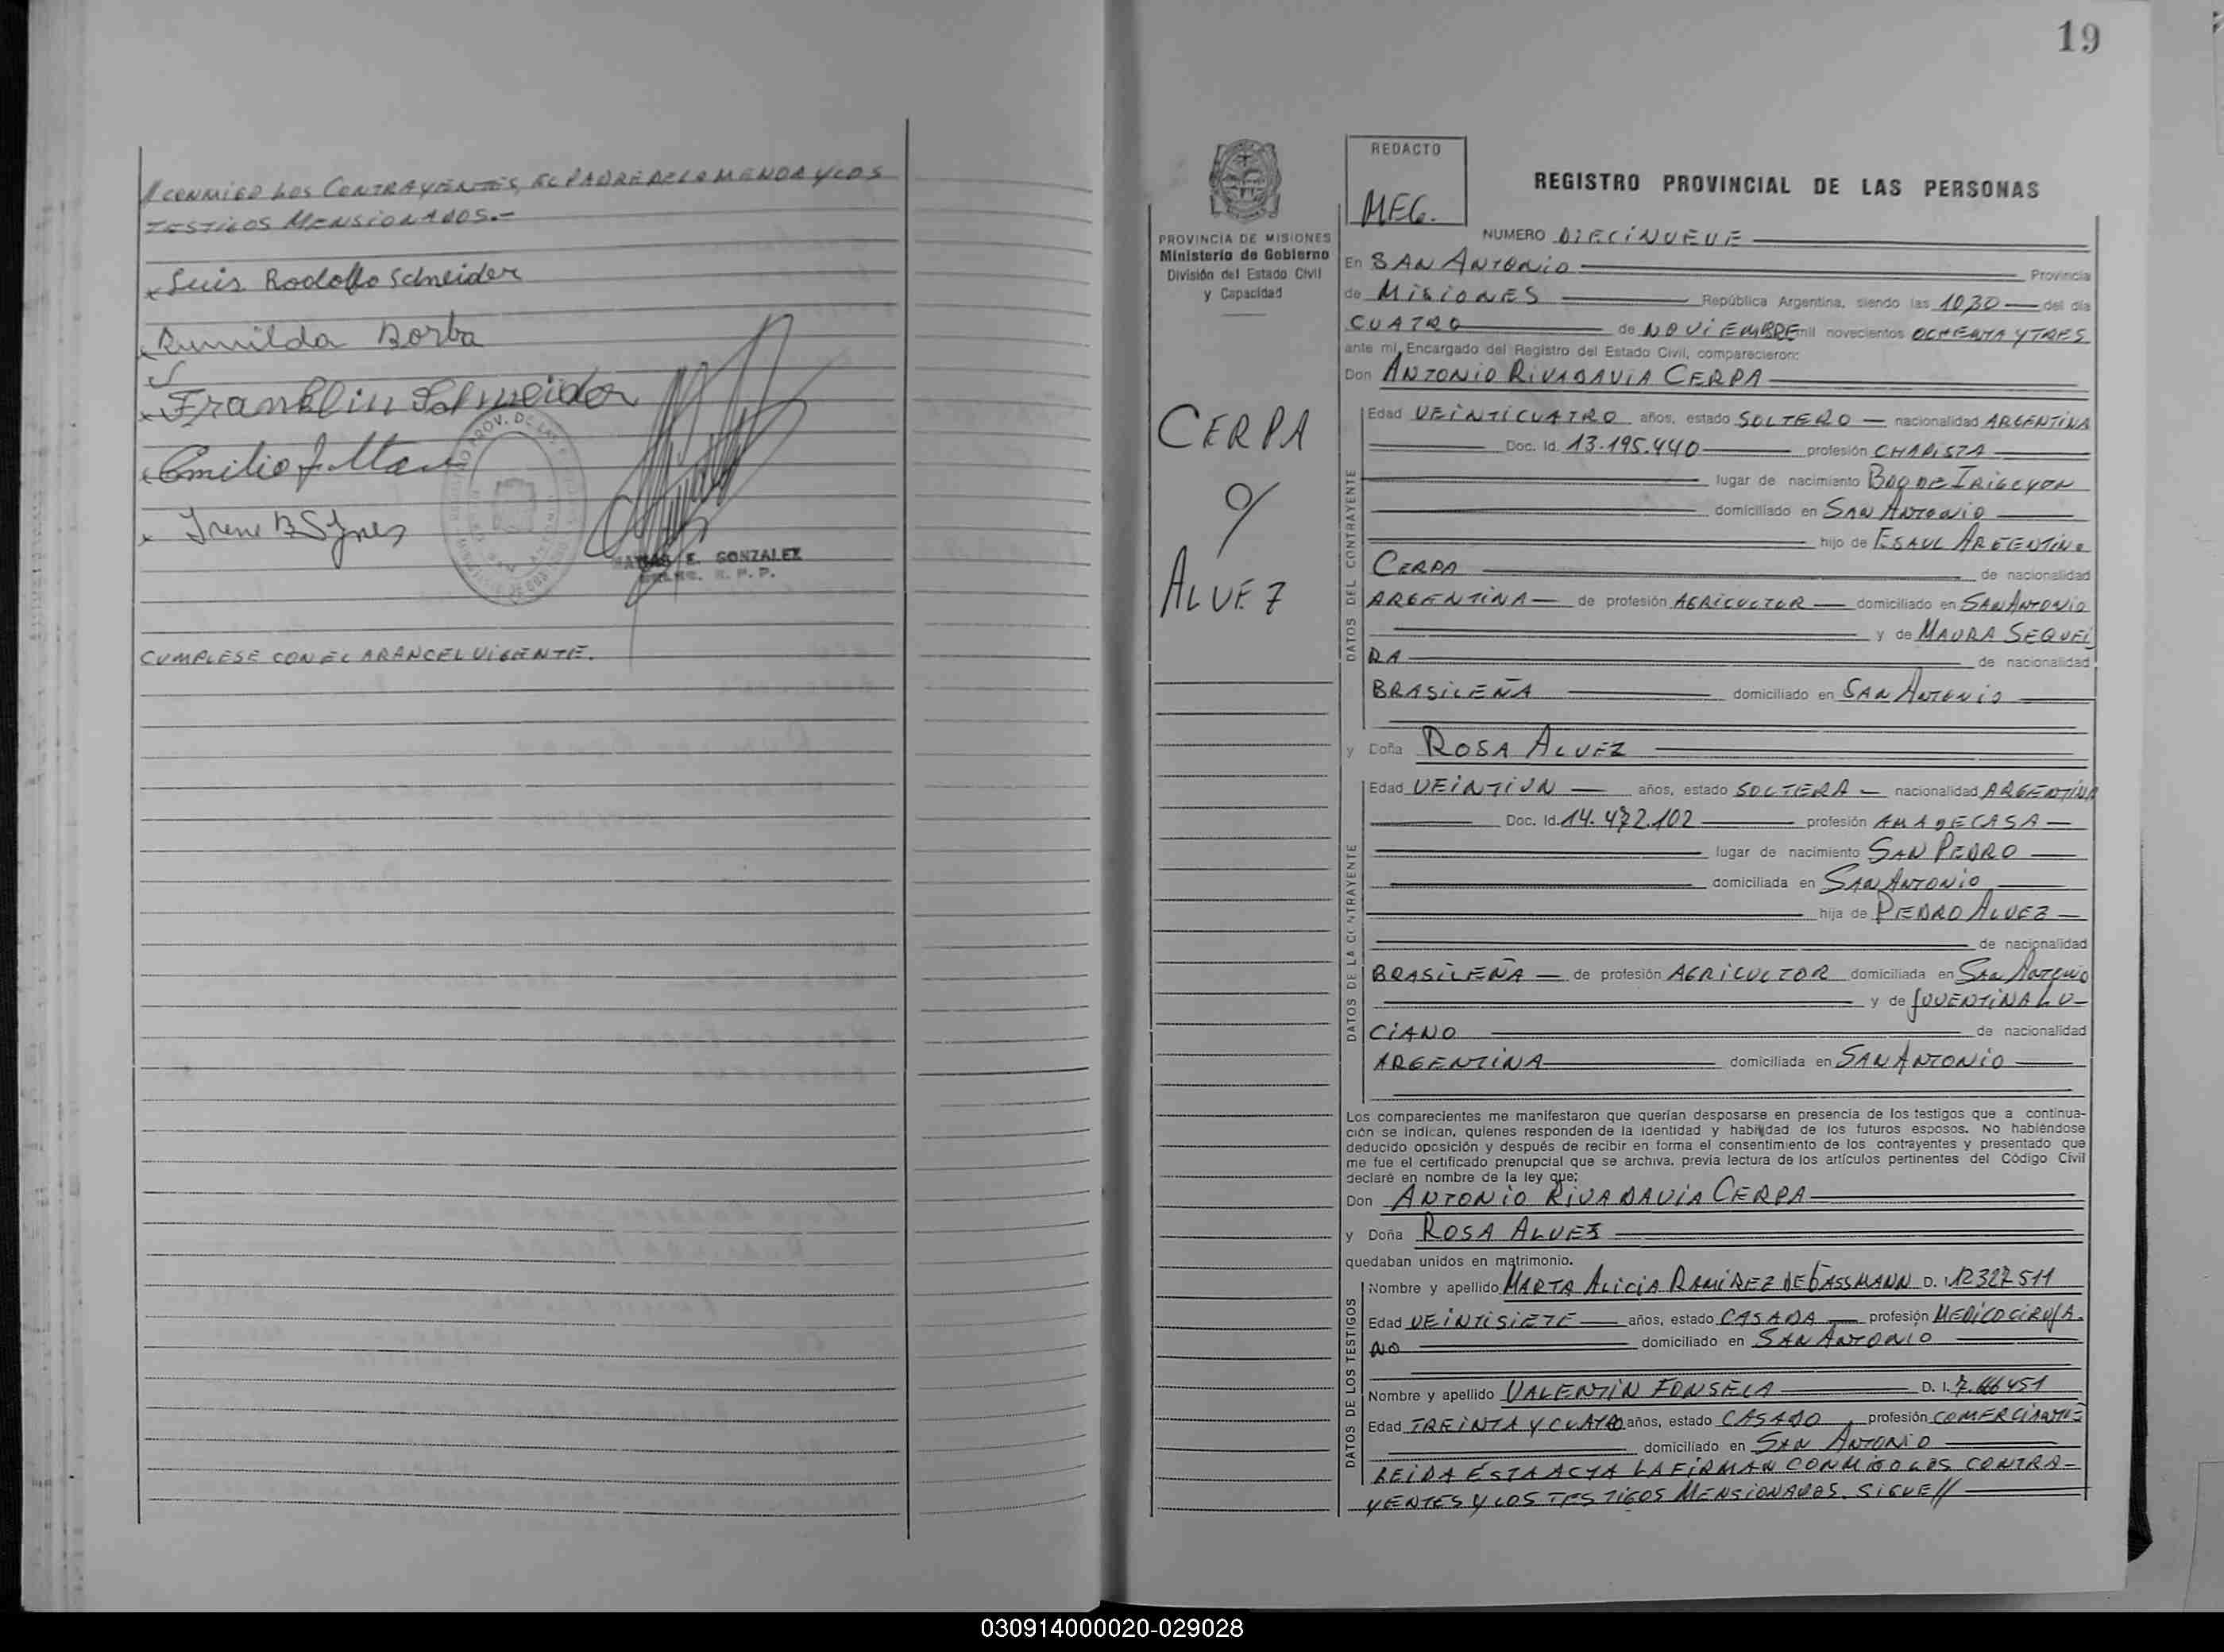 // CONMIGO LOS CONTRAYENTES, EL PADRE DE LA MENOR Y LOS
TESTIGOS MENSIONADOS.-
x Luis Rodolfo Schneider
x Rumilda Borba
x Franklin Schneider
x Emilio
x Irene B
E. GONZALEZ
R. P. P.
CUMPLESE CON EL ARANCEL VIGENTE.
19
PROVINCIA DE MISIONES
Ministerio de Gobierno
División del Estado Civil
y Capacidad
CERPA
c/
ALVEZ
REDACTO
MEG.
REGISTRO PROVINCIAL DE LAS PERSONAS
NUMERO DIECINUEVE
En SAN ANTONIO Provincia
de MISIONES República Argentina, siendo las 10,30 del día
CUATRO de NOVIEMBRE mil novecientos OCHENTA Y TRES
ante mí, Encargado del Registro del Estado Civil, comparecieron:
Don ANTONIO RIVADAVIA CERPA
DATOS DEL CONTRAYENTE
Edad VEINTICUATRO años, estado SOLTERO nacionalidad ARGENTINA
Doc. Id. 13.195.440 profesión CHAPISTA
lugar de nacimiento BDO DE IRIGOYEN
domiciliado en SAN ANTONIO
hijo de ESAUL ARGENTINO
CERPA de nacionalidad
ARGENTINA de profesión AGRICULTOR domiciliado en SAN ANTONIO
y de MAURA SEQUEI
RA de nacionalidad
BRASILEÑA domiciliado en SAN ANTONIO
y Doña ROSA ALVEZ
DATOS DE LA CONTRAYENTE
Edad VEINTIUN años, estado SOLTERA nacionalidad ARGENTINA
Doc. Id. 14.472.102 profesión AMA DE CASA
lugar de nacimiento SAN PEDRO
domiciliada en SAN ANTONIO
hija de PEDRO ALVEZ
de nacionalidad
BRASILEÑA de profesión AGRICULTOR domiciliada en SAN ANTONIO
y de JUVENTINA LU-
CIANO de nacionalidad
ARGENTINA domiciliada en SAN ANTONIO
Los comparecientes me manifestaron que querían desposarse en presencia de los testigos que a continua-
ción se indican, quienes responden de la identidad y habilidad de los futuros esposos. No habiéndose
deducido oposición y después de recibir en forma el consentimiento de los contrayentes y presentado que
me fue el certificado prenupcial que se archiva, previa lectura de los artículos pertinentes del Código Civil
declaré en nombre de la ley que:
Don ANTONIO RIVADAVIA CERPA
y Doña ROSA ALVEZ
quedaban unidos en matrimonio.
DATOS DE LOS TESTIGOS
Nombre y apellido MARTA ALICIA RAMIREZ DE GASSMANN D. I. 12327511
Edad VEINTISIETE años, estado CASADA profesión MEDICO CIRUJA.
NO domiciliado en SAN ANTONIO
Nombre y apellido VALENTIN FONSECA D. I. 7.666451
Edad TREINTA Y CUATRO años, estado CASADO profesión COMERCIANTE
domiciliado en SAN ANTONIO
LEIDA ESTA ACTA LA FIRMAN CONMIGO LOS CONTRA-
YENTES Y LOS TESTIGOS MENSIONADOS. SIGUE //
030914000020-029028